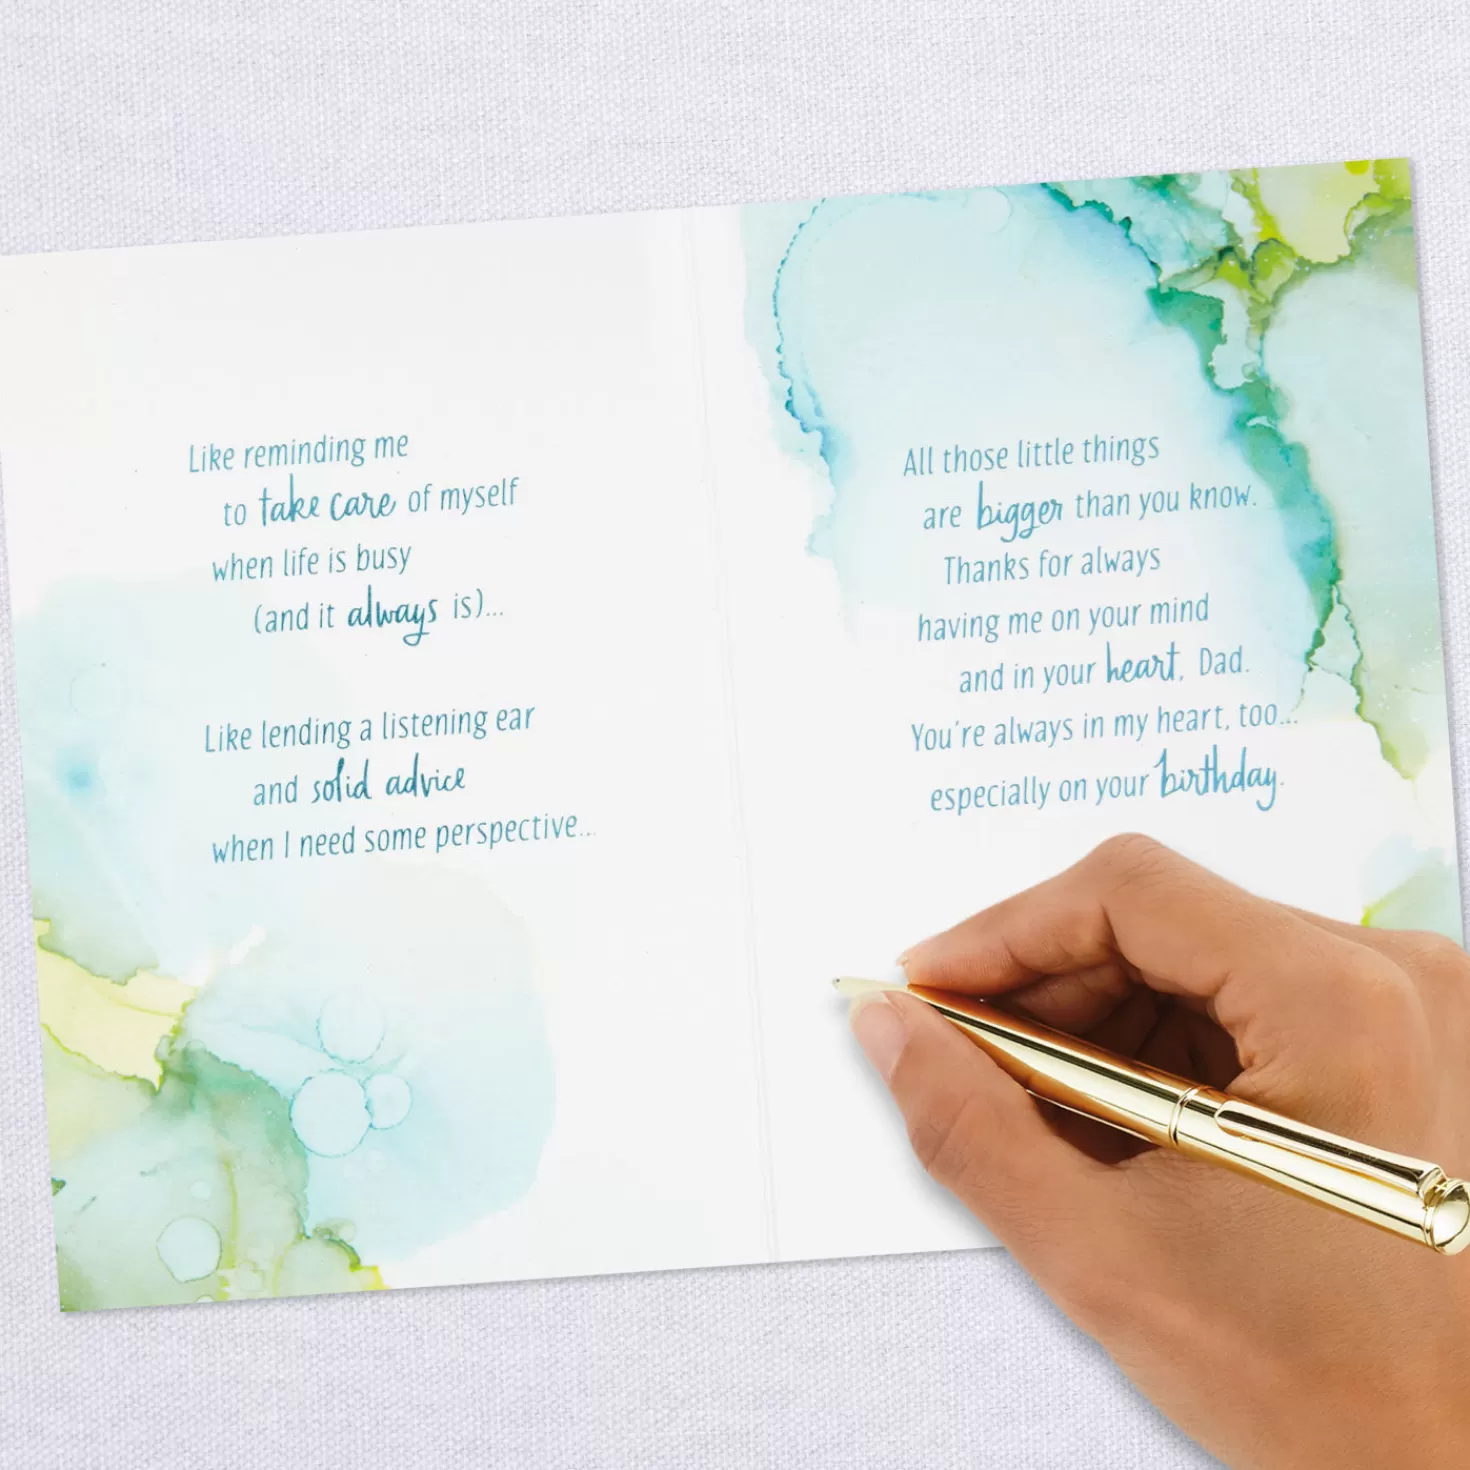 Like reminding me
to take care of myself
when life is busy
(and it always is)...
Like lending a listening ear
and solid advice
when I need some perspective...
All those little things
are bigger than you know.
Thanks for always
having me on your mind
and in your heart, Dad.
You're always in my heart, too...
especially on your birthday.